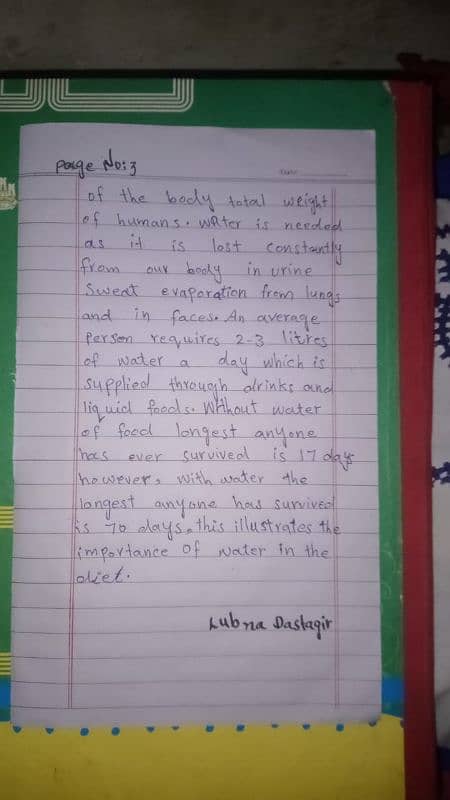 Page No:3
of the body total weight
of humans. water is needed
as it is lost constantly
from our body in urine
Sweat evaporation from lungs
and in faces. An average
Person requires 2-3 litres
of water a day which is
supplied through drinks and
liquid foods. Without water
of food longest anyone
has ever survived is 17 days
however, with water the
longest anyone has survived
is 70 days. this illustrates the
importance of water in the
diet.
Lubna Dastagir